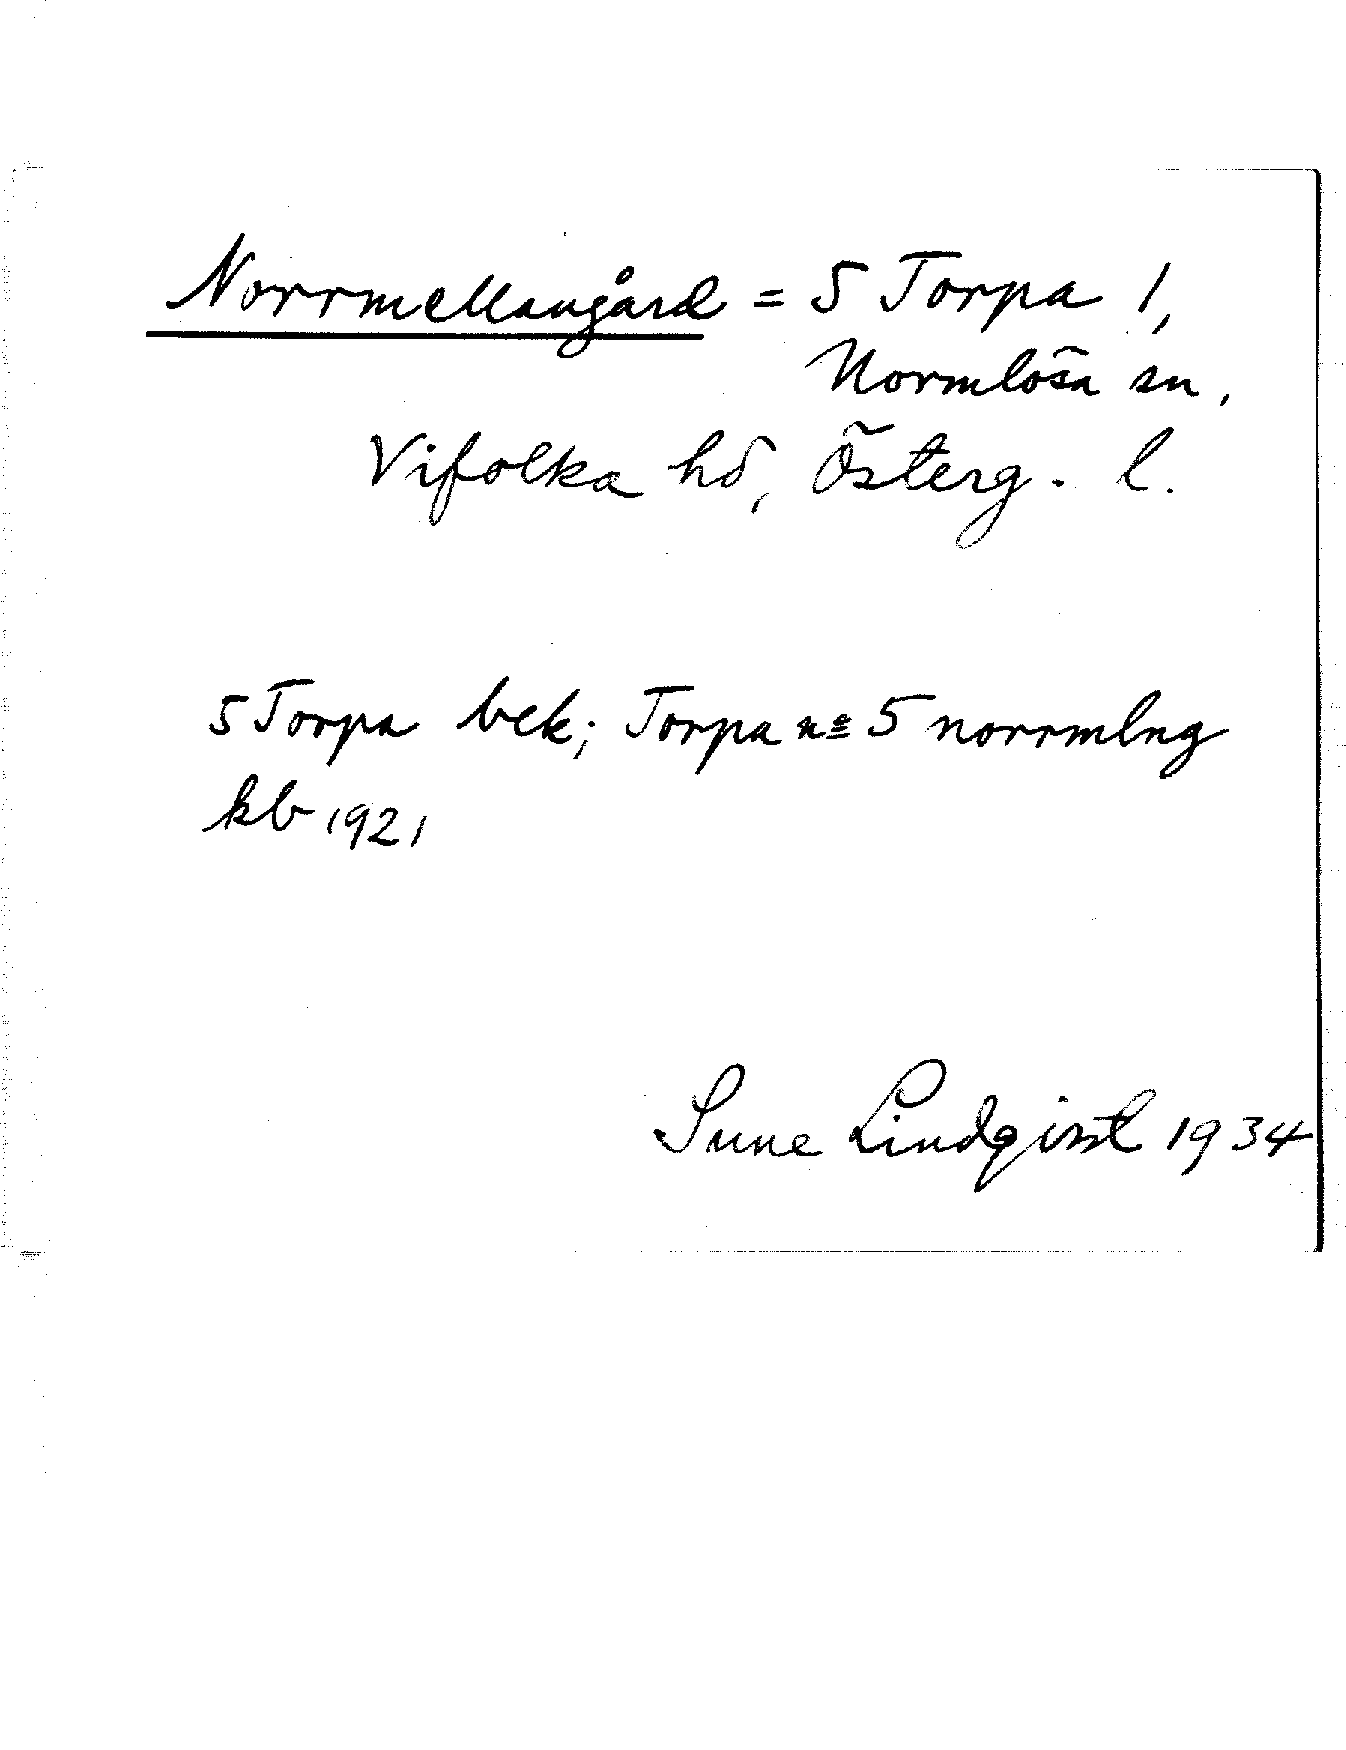 Norrmellangård = 5 Torpa 1,
Normlösa sn,
Vifolka hd, Österg. l.
5 Torpa bek; Torpa nº 5 norrmlng
kb 1921
Sune Lindqvist 1934